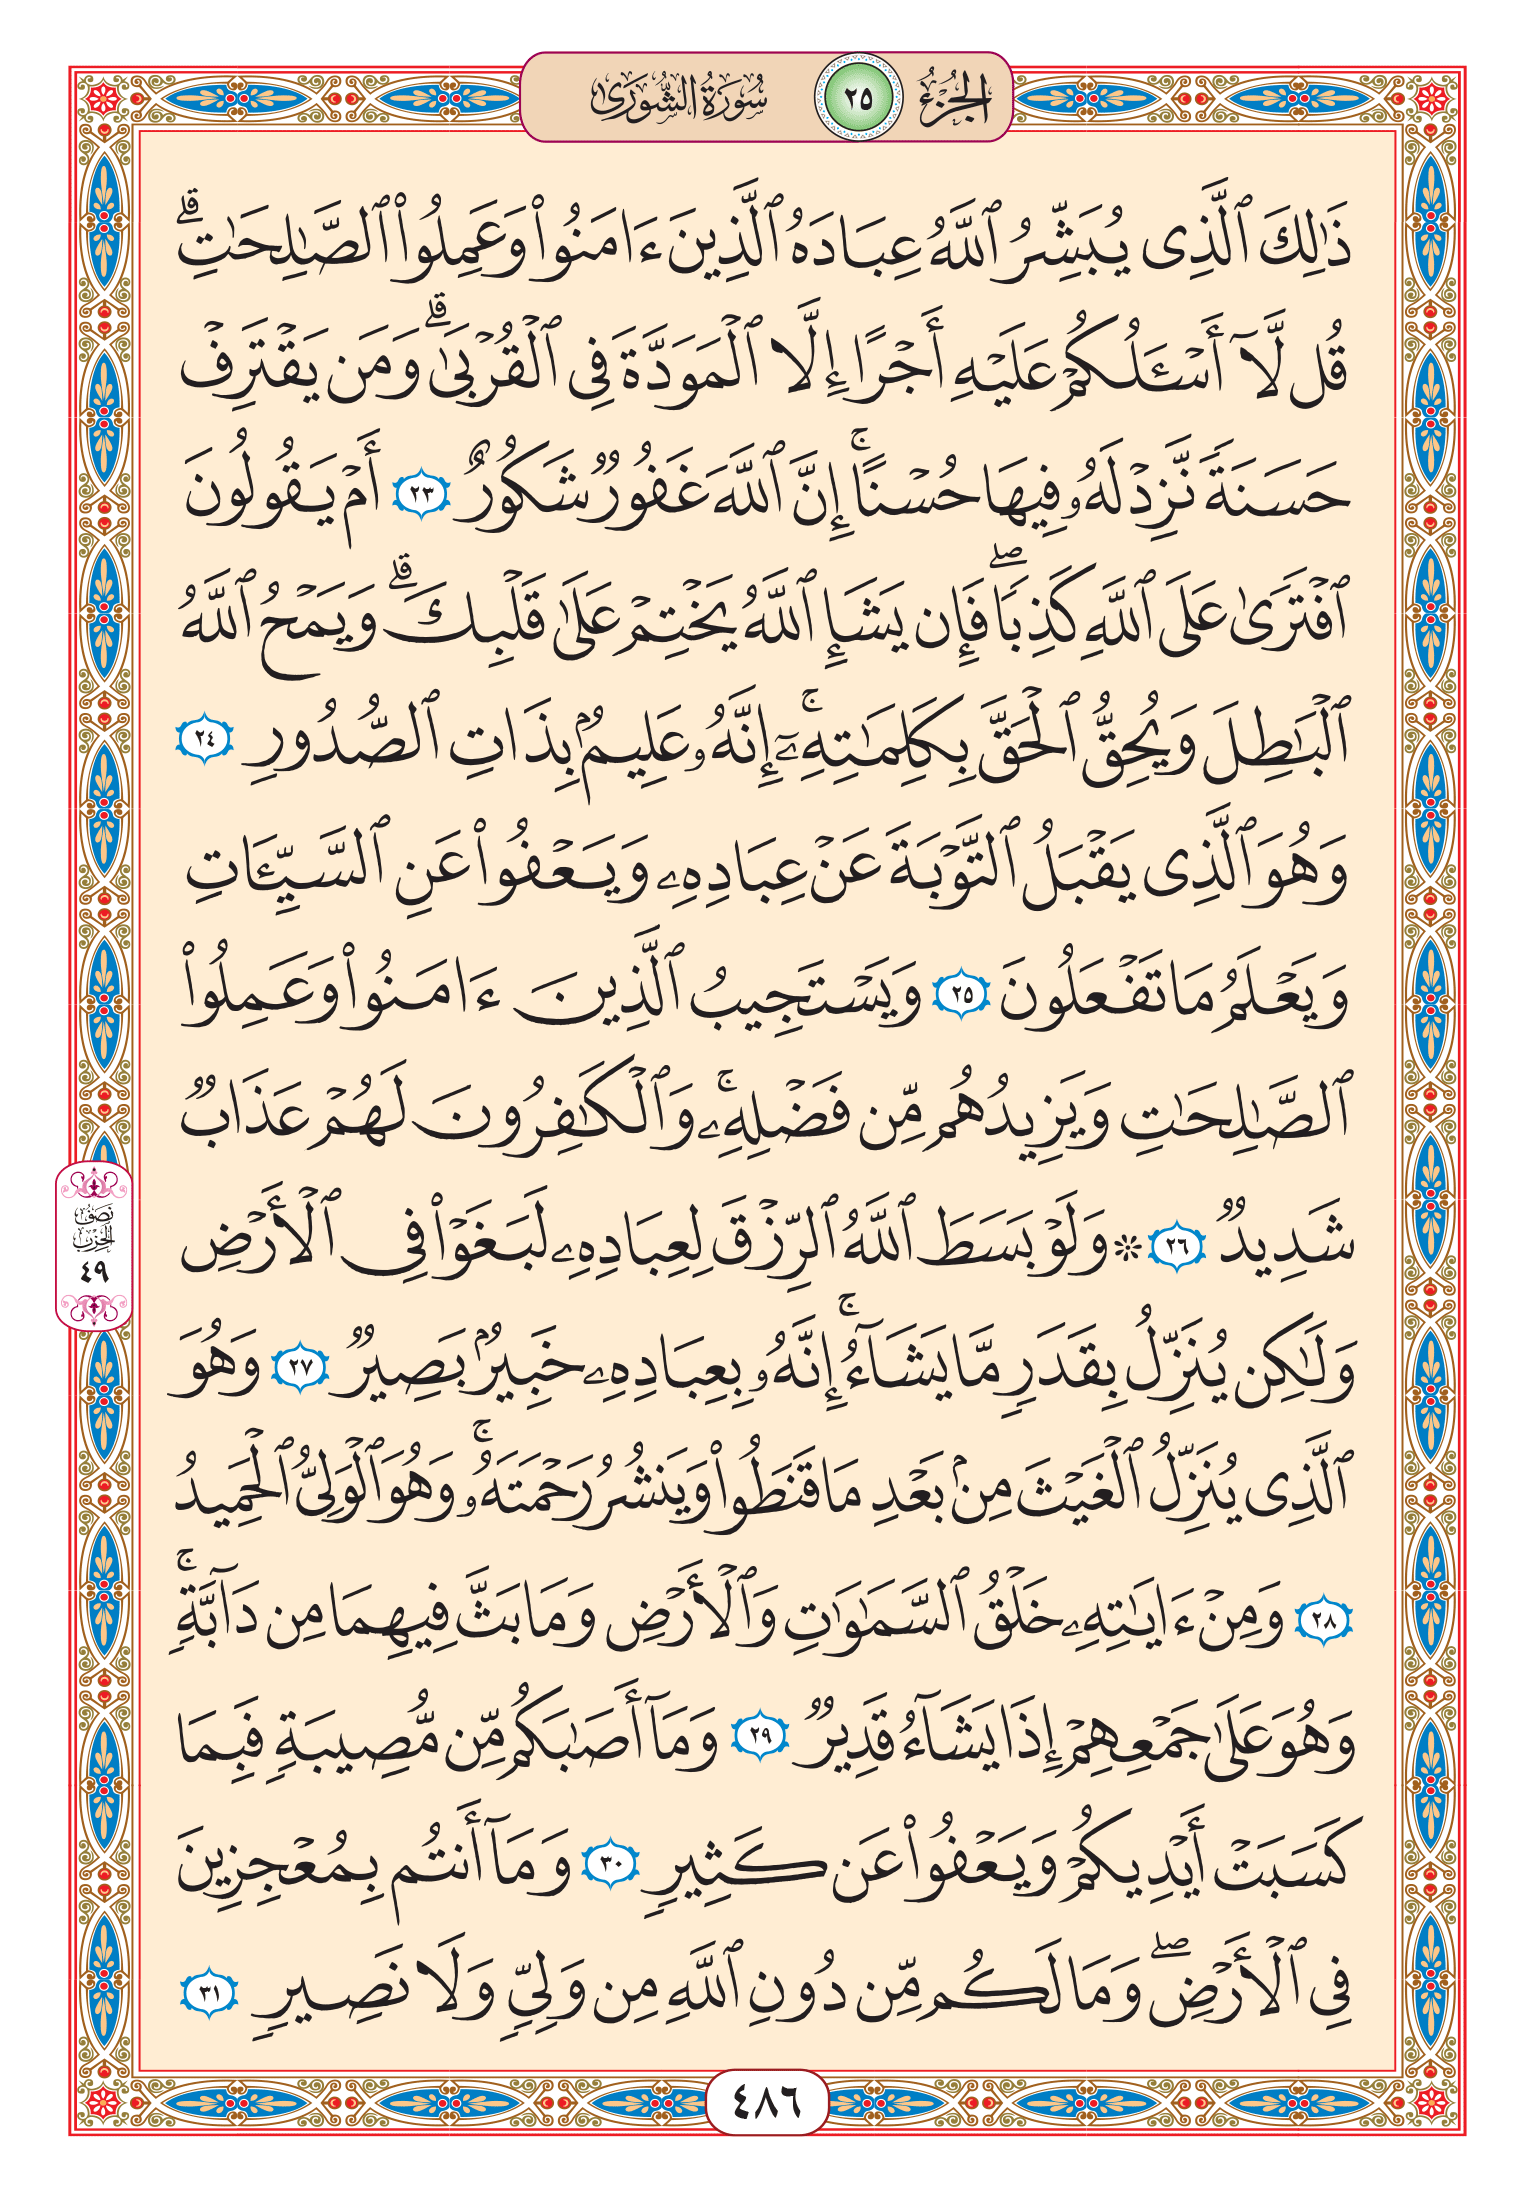 الجزء ٢٥ سورة الشورى
ذَٰلِكَ ٱلَّذِى يُبَشِّرُ ٱللَّهُ عِبَادَهُ ٱلَّذِينَ ءَامَنُوا۟ وَعَمِلُوا۟ ٱلصَّـٰلِحَـٰتِ ۗ
قُل لَّآ أَسْـَٔلُكُمْ عَلَيْهِ أَجْرًا إِلَّا ٱلْمَوَدَّةَ فِى ٱلْقُرْبَىٰ ۗ وَمَن يَقْتَرِفْ
حَسَنَةً نَّزِدْ لَهُۥ فِيهَا حُسْنًا ۚ إِنَّ ٱللَّهَ غَفُورٌ شَكُورٌ ٢٣ أَمْ يَقُولُونَ
ٱفْتَرَىٰ عَلَى ٱللَّهِ كَذِبًا ۖ فَإِن يَشَإِ ٱللَّهُ يَخْتِمْ عَلَىٰ قَلْبِكَ ۗ وَيَمْحُ ٱللَّهُ
ٱلْبَـٰطِلَ وَيُحِقُّ ٱلْحَقَّ بِكَلِمَـٰتِهِۦٓ ۚ إِنَّهُۥ عَلِيمٌۢ بِذَاتِ ٱلصُّدُورِ ٢٤
وَهُوَ ٱلَّذِى يَقْبَلُ ٱلتَّوْبَةَ عَنْ عِبَادِهِۦ وَيَعْفُوا۟ عَنِ ٱلسَّيِّـَٔاتِ
وَيَعْلَمُ مَا تَفْعَلُونَ ٢٥ وَيَسْتَجِيبُ ٱلَّذِينَ ءَامَنُوا۟ وَعَمِلُوا۟
ٱلصَّـٰلِحَـٰتِ وَيَزِيدُهُم مِّن فَضْلِهِۦ ۚ وَٱلْكَـٰفِرُونَ لَهُمْ عَذَابٌ
شَدِيدٌ ٢٦ ۞ وَلَوْ بَسَطَ ٱللَّهُ ٱلرِّزْقَ لِعِبَادِهِۦ لَبَغَوْا۟ فِى ٱلْأَرْضِ
وَلَـٰكِن يُنَزِّلُ بِقَدَرٍ مَّا يَشَآءُ ۚ إِنَّهُۥ بِعِبَادِهِۦ خَبِيرٌۢ بَصِيرٌ ٢٧ وَهُوَ
ٱلَّذِى يُنَزِّلُ ٱلْغَيْثَ مِنۢ بَعْدِ مَا قَنَطُوا۟ وَيَنشُرُ رَحْمَتَهُۥ ۚ وَهُوَ ٱلْوَلِىُّ ٱلْحَمِيدُ
٢٨ وَمِنْ ءَايَـٰتِهِۦ خَلْقُ ٱلسَّمَـٰوَٰتِ وَٱلْأَرْضِ وَمَا بَثَّ فِيهِمَا مِن دَآبَّةٍ ۚ
وَهُوَ عَلَىٰ جَمْعِهِمْ إِذَا يَشَآءُ قَدِيرٌ ٢٩ وَمَآ أَصَـٰبَكُم مِّن مُّصِيبَةٍ فَبِمَا
كَسَبَتْ أَيْدِيكُمْ وَيَعْفُوا۟ عَن كَثِيرٍ ٣٠ وَمَآ أَنتُم بِمُعْجِزِينَ
فِى ٱلْأَرْضِ ۖ وَمَا لَكُم مِّن دُونِ ٱللَّهِ مِن وَلِىٍّ وَلَا نَصِيرٍ ٣١
نصف
الحزب
٤٩
٤٨٦